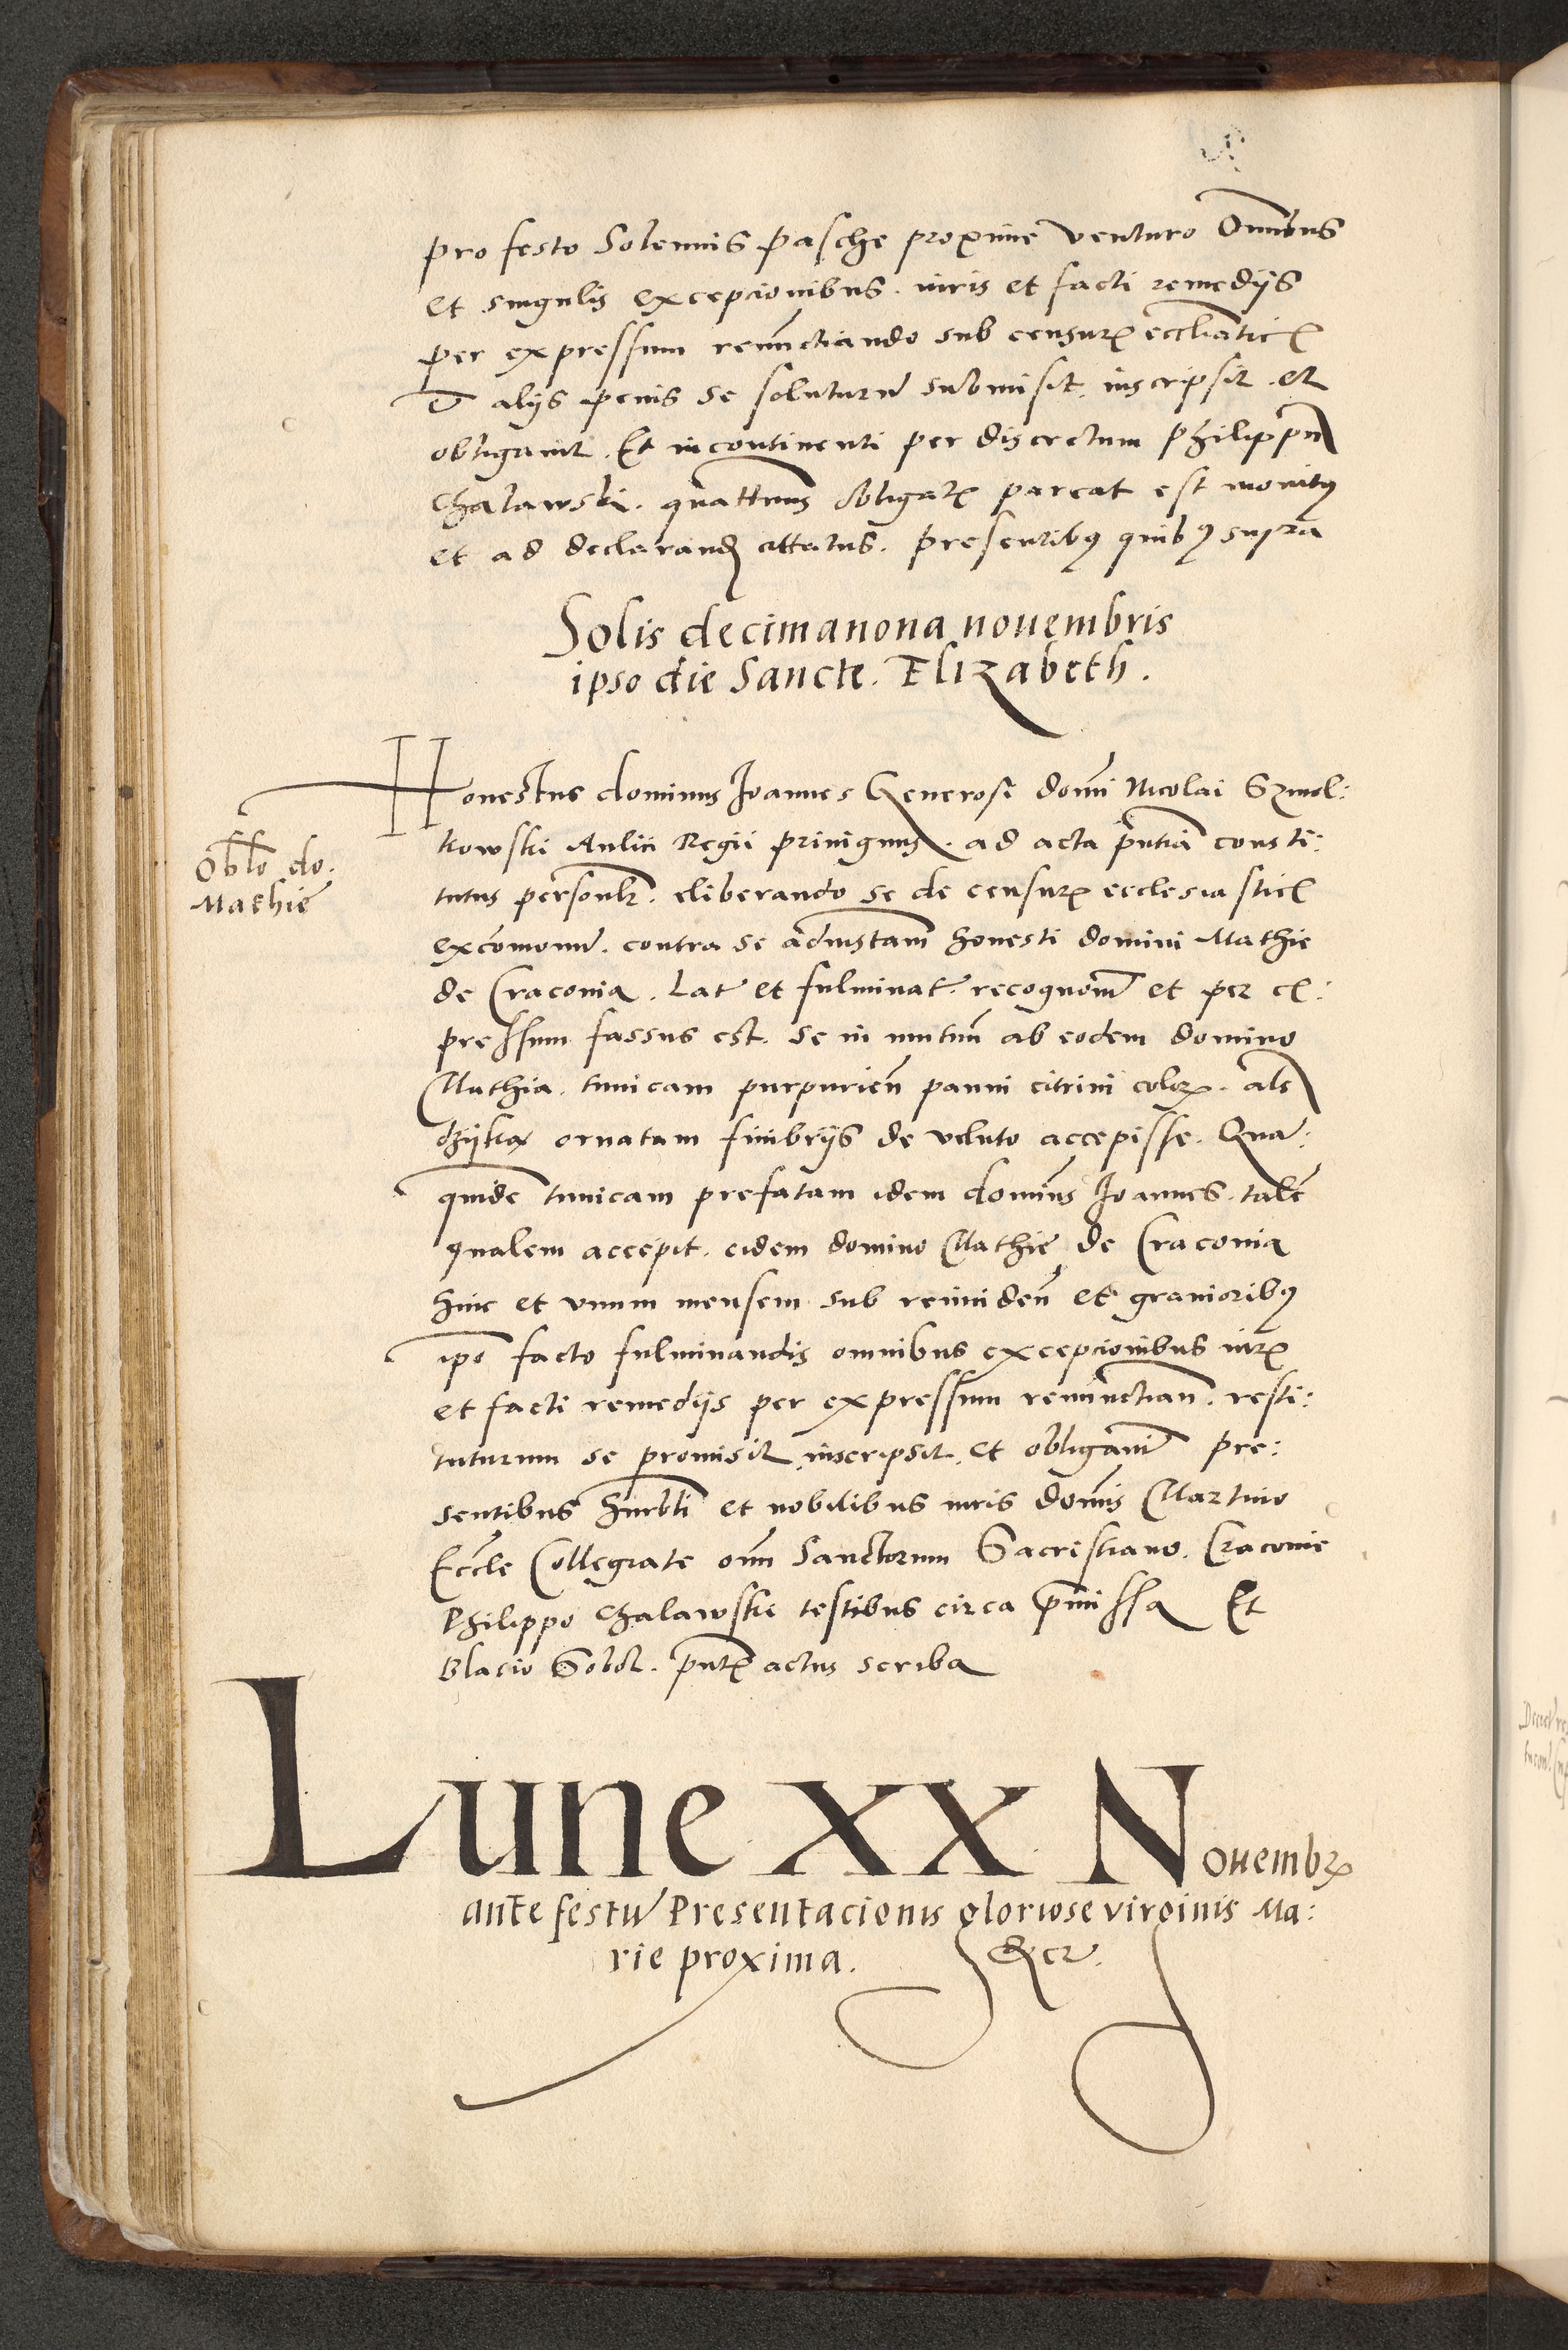 pro festo Solennis Pasche proxime venturo Omnibus
et singulis excepcionibus. iuris et facti remedijs
per expressum renunctiando sub censurꝭ eccliaticꝭ
alijs penis se soluturū submisit. inscripsit. et
obligauit. Et incontinenti per discretum Philippū
Chalawski. quattenus obligatꝭ pareat est monitꝰ
et ad declarandꝭ cittatus. presentibꝰ quibꝰ supra
Solis decimanona nouembris
ipso die Sancte. Elizabeth.
Honestus dominus Joannes Generosi domī Nicolai Szmol:
kowski Aulici Regii priuignus. ad acta pñtia consti:
tutus personlr. eliberando se de censurꝭ ecclesiasticꝭ
excōmonū. contra se ad instam honesti domini Mathie
de Craconia. Lat et fulminat. recognouit et per ex:
pressum fassus est. se in mutuū ab eodem domino
Mathia. tunicam purpurień panni citrini colorꝭ. als
ornatam fimbrijs de veluto accepisse. Quā:
quidē tunicam prefatam idem domīus Joannes. talē
qualem accepit. eidem domino Mathie de Craconia
hinc et vnum mensem sub reinciden̄ et grauioribꝰ
ip̄o facto fulminandis omnibus excepcionibus iurꝭ
et facti remedijs per expressum renunctian̄. resti:
tuturum se promisit. inscripsit. et obligauit pre:
sentibus hinrbli et nobilibus uiris domīs Martino
Eccle Collegiate oīm Sanctorum Sacristiano. Craconie
Philippo Chalawski testibus circa pmissa Et
Blasio Sobol. pñtꝭ actus scriba
Oblō do.
Mathie
Lune XX Nouembrꝭ
ante festū Presentacionis gloriose virginis Ma:
rie proxima. &cr.